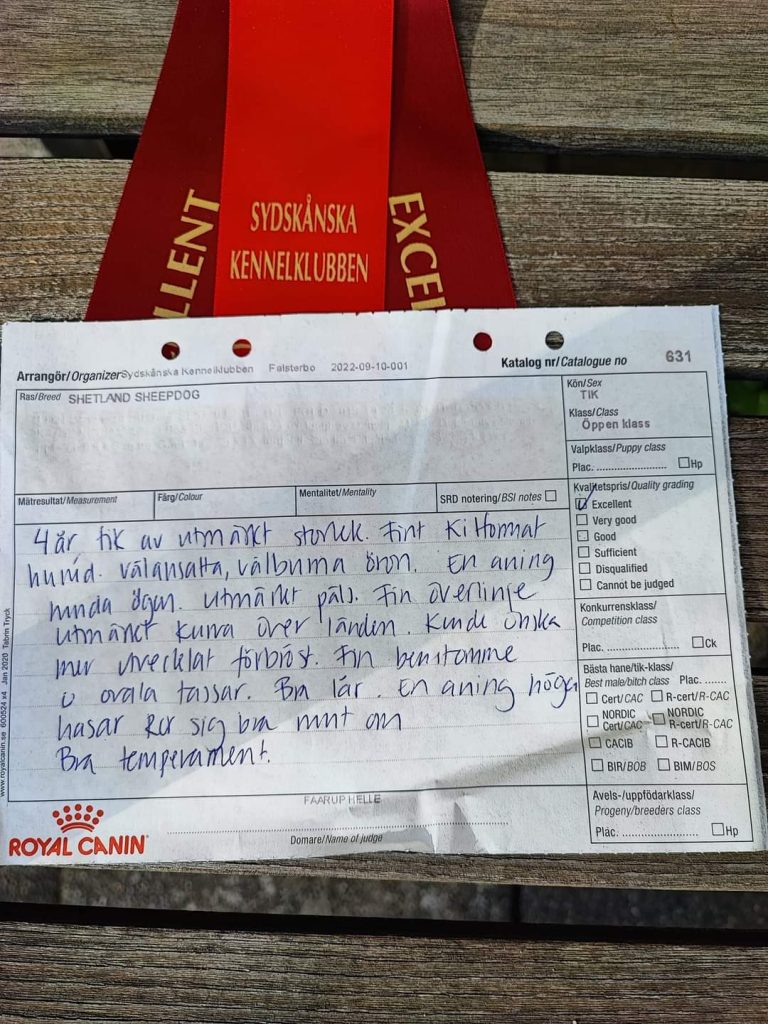 LLENT
SYDSKÅNSKA
KENNELKLUBBEN
EXCEL
Arrangör/Organizer Sydskånska Kennelklubben Falsterbo 2022-09-10-001
Katalog nr/Catalogue no 631
Ras/Breed SHETLAND SHEEPDOG
Kön/Sex
TIK
Klass/Class
Öppen klass
Valpklass/Puppy class
Plac. Hp
Mätresultat/Measurement Färg/Colour Mentalitet/Mentality SRD notering/BSI notes
Kvalitetspris/Quality grading
Excellent
Very good
Good
Sufficient
Disqualified
Cannot be judged
4 år tik av utmärkt storlek. Fint kilformat
huvud. välansatta, välburna öron. En aning
runda ögon. utmärkt päls. Fin överlinje
utmärkt kurva över länden. Kunde önska
mer utvecklat förbröst. Fin benstomme
o ovala tassar. Bra lår. En aning höga
hasar Rör sig bra runt om
Bra temperament.
Konkurrensklass/
Competition class
Plac. Ck
Bästa hane/tik-klass/
Best male/bitch class Plac.
Cert/CAC R-cert/R-CAC
NORDIC Cert/CAC NORDIC R-cert/R-CAC
CACIB R-CACIB
BIR/BOB BIM/BOS
Avels-/uppfödarklass/
Progeny/breeders class
Plac. Hp
FAARUP HELLE
Domare/Name of judge
ROYAL CANIN
www.royalcanin.se 600524 x4 Jan 2020 Tabrin Tryck